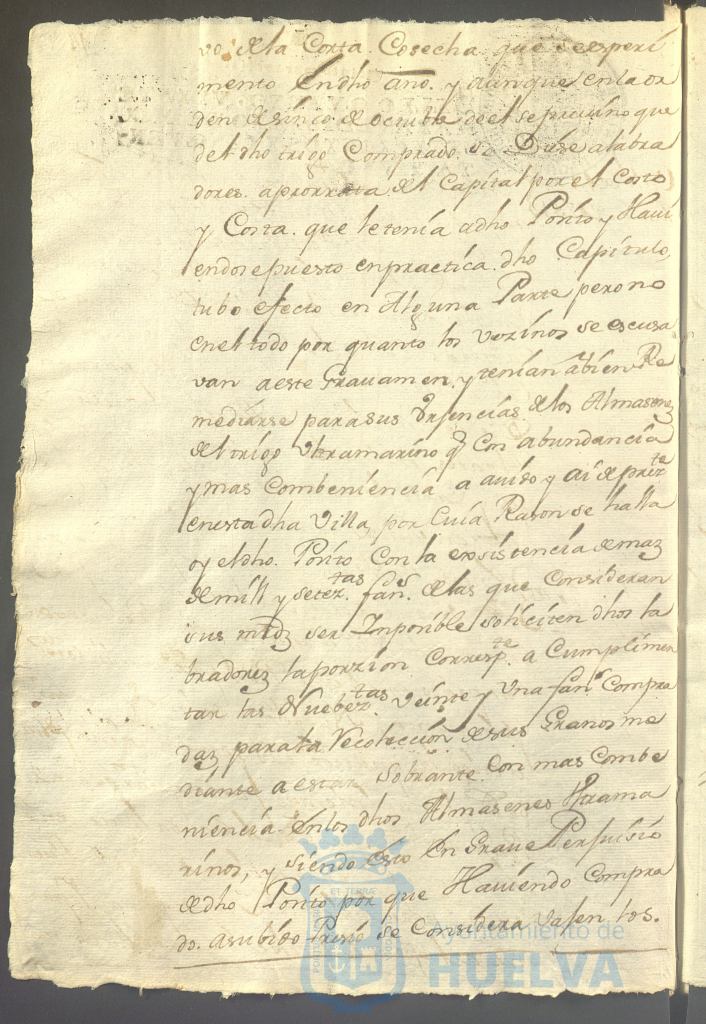 vo de la Corta Cosecha que se esperi
mento en dho Año. y aunque en la or
den de sinco de Octubre de el se previno que
del dho trigo Comprado se Diese a labra
dores aprorrata del Capital por el Costo
y Costa que le tenia a dho Posito y Havi
endose puesto en practica dho Capitulo,
tubo efecto en Alguna Parte pero no
en el todo por quanto los vezinos se escusa
van a este Gravamen, y tenian a bien Re
mediarse para sus Urjencias de los Almasenes
del trigo Ultramarino q Con abundancia
y mas Combeniencia a avido y ai de preste
en esta dha Villa, por Cuia Rason se halla
oy el dho Posito Con la exsistencia de maz
de mill y setez.tas fan.s de las que Consideran
sus mrdz ser Imposible soliciten dhos la
bradorez la porzion Corresp.te a Cumplimen
tar las Nuebez.tas veinte y Una fan.s Compra
daz para la Recoleccion de sus Granos me
diante a estar Sobrante Con mas Combe
niencia en los dhos Almasenes Utrama
rinos, y siendo esto en Grave Perjuisio
de dho Posito por que Haviendo Compra
do. a subido Presio se Considera Vasen los.
Ayuntamiento de
HUELVA